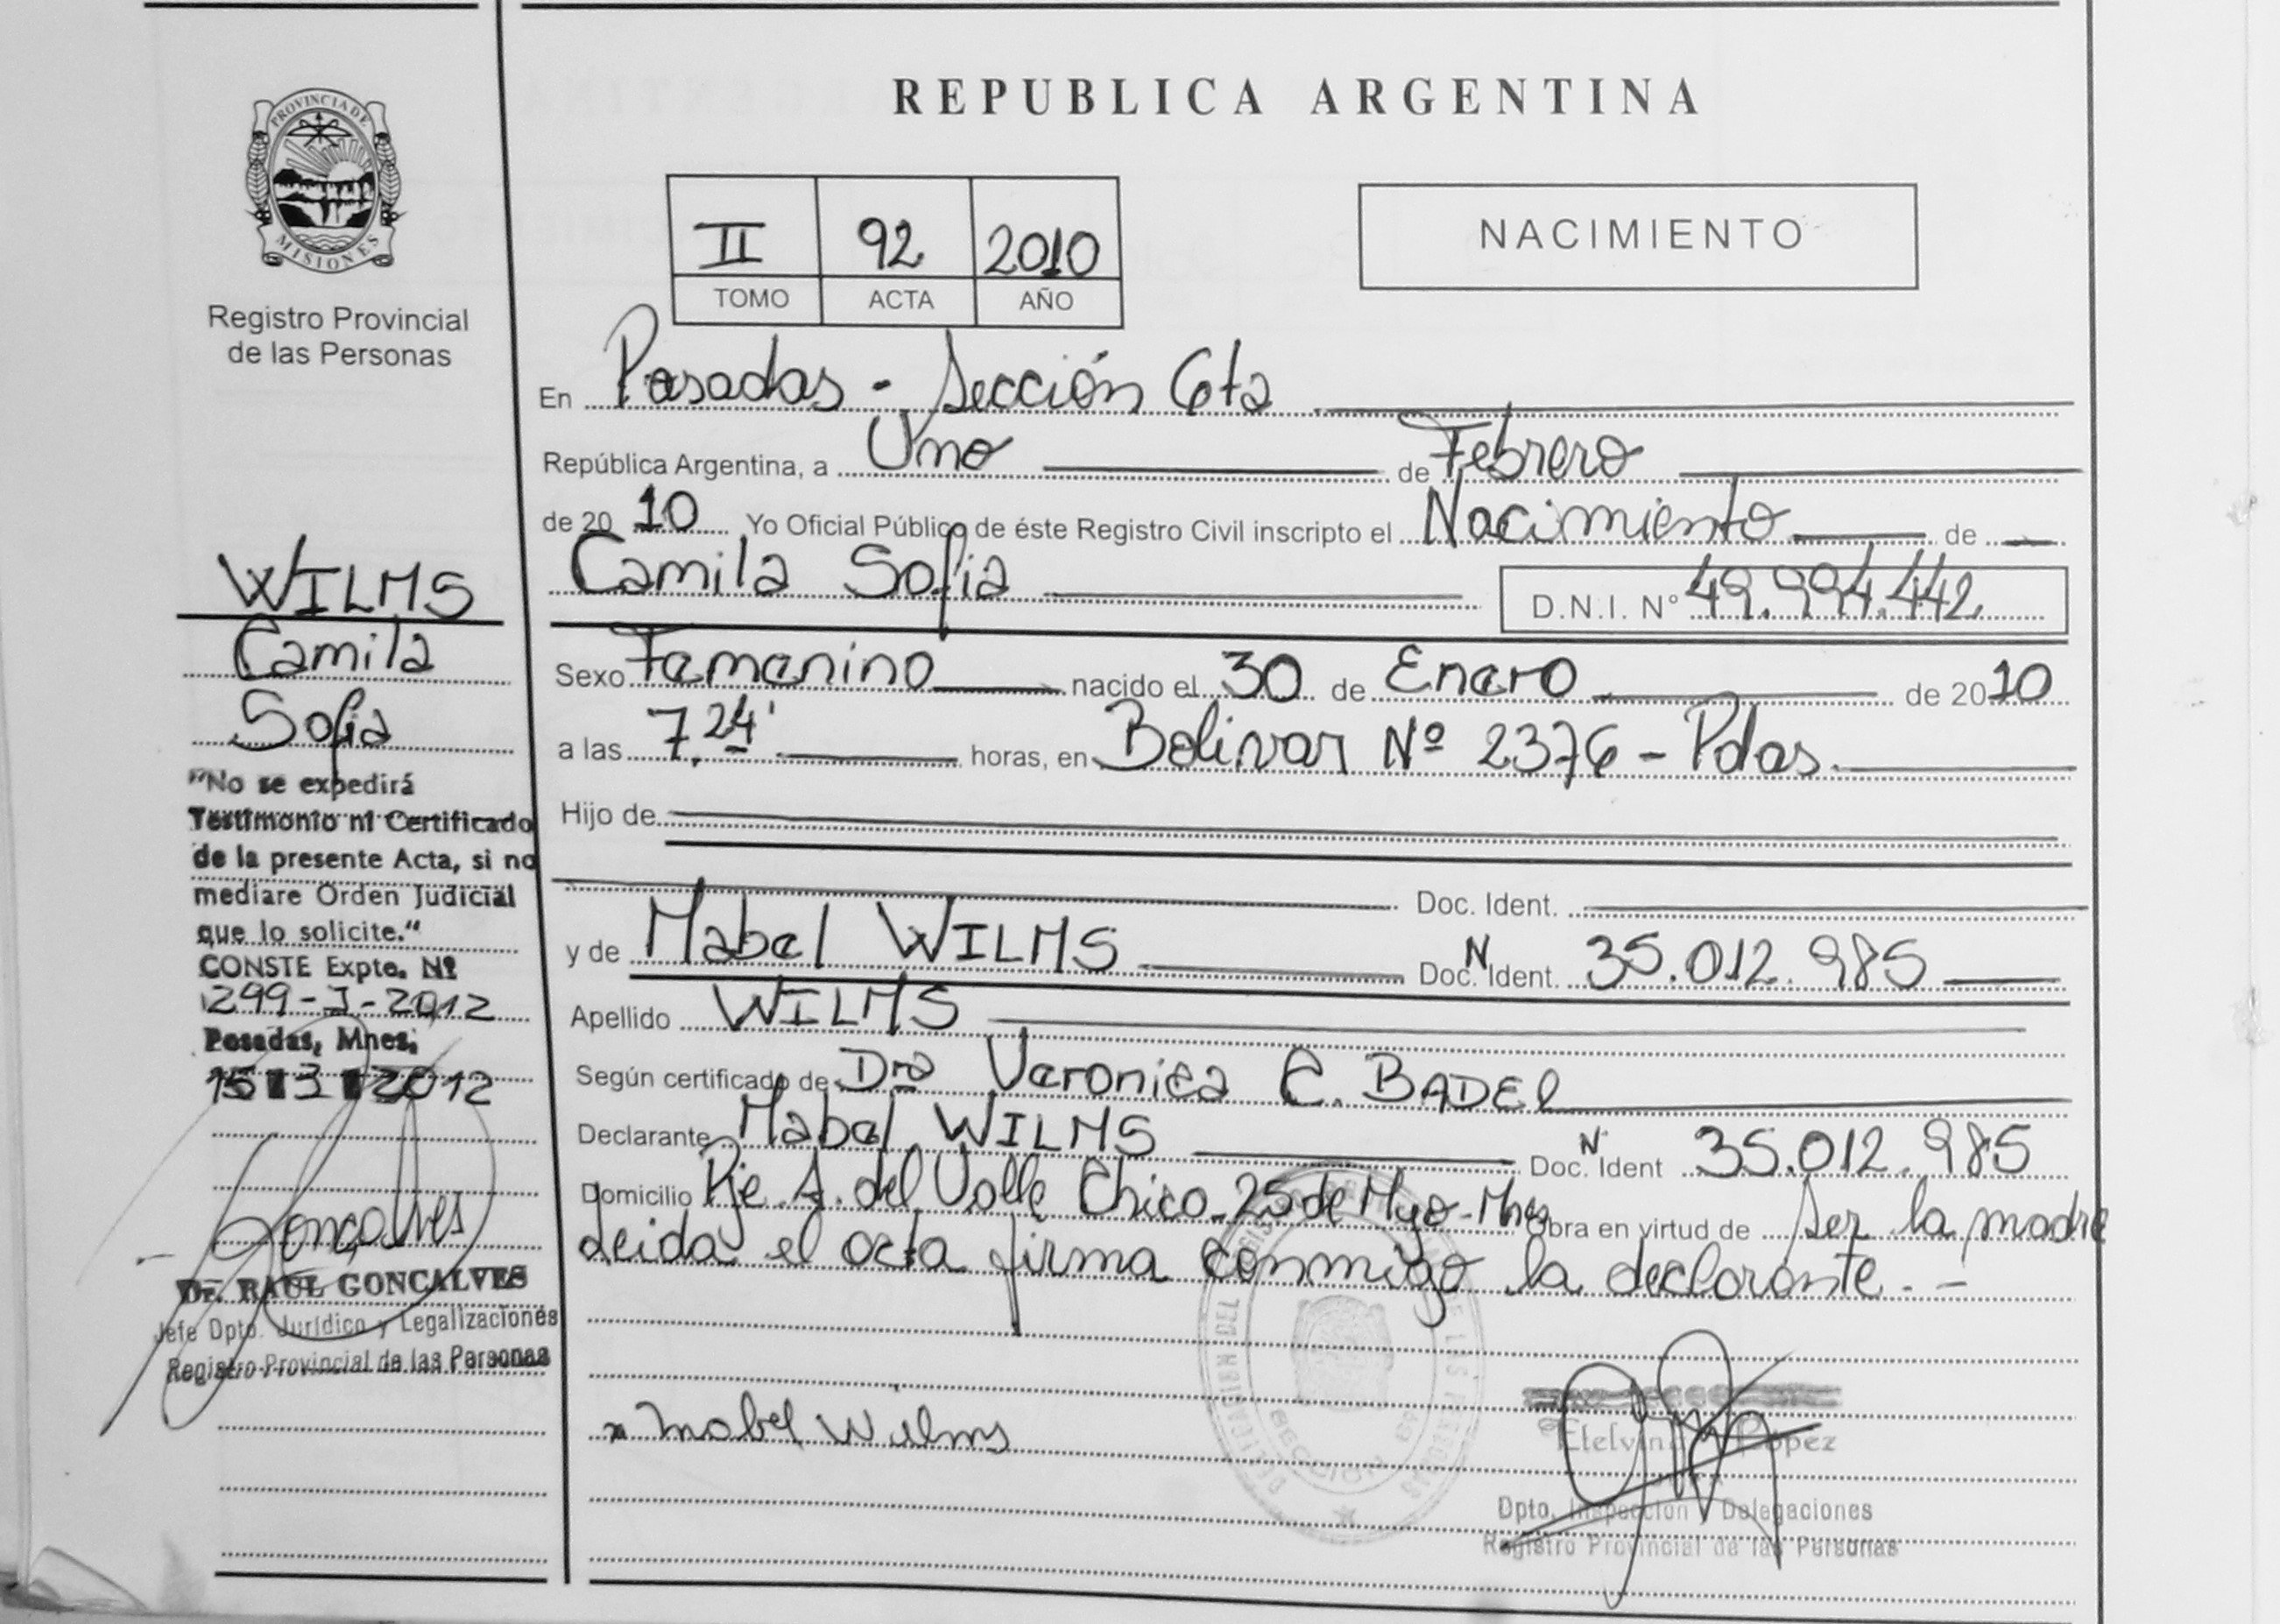 REPUBLICA ARGENTINA
PROVINCIA DE
MISIONES
Registro Provincial
de las Personas
II 92 2010
TOMO ACTA AÑO
NACIMIENTO
En Posadas - Sección 6ta
República Argentina, a Uno de Febrero
de 20 10 Yo Oficial Público de éste Registro Civil inscripto el Nacimiento de
Camila Sofia D.N.I. N° 49.994.442
Sexo Femenino nacido el 30 de Enero de 2010
a las 7,24' horas, en Bolivar Nº 2376 - Pdas.
Hijo de
Doc. Ident.
y de Mabel WILMS Doc. N Ident. 35.012.985
Apellido WILMS
Según certificado de Dra Veronica E. BADEL
Declarante Mabel WILMS Doc. N Ident 35.012.985
Domicilio Pje A. del Valle Chico - 25 de Myo - Mnes Obra en virtud de ser la madre
leida el acta firma conmigo la declarante. -
x Mabel Wilms
Etelvina López
Dpto. Inspección Delegaciones
Registro Provincial de las Personas
WILMS
Camila
Sofia
"No se expedirá
Testimonio ni Certificado
de la presente Acta, si no
mediare Orden Judicial
que lo solicite."
CONSTE Expte. Nº
1299-J-2012
Posadas, Mnes,
15 3 2012
Goncalves
Dr. RAUL GONCALVES
Jefe Dpto. Jurídico y Legalizaciones
Registro Provincial de las Personas